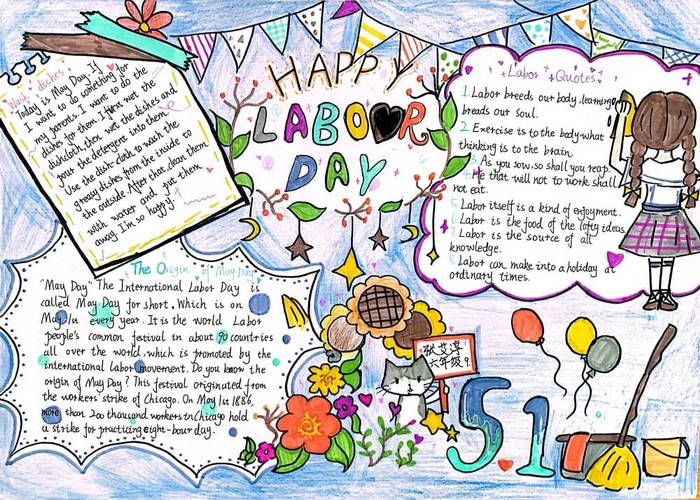 Wash dishes
Today is May Day. I
I want to do something for
my parents. I want to do the
dishes for them. First wet the
dishcloth, then wet the dishes and
pour the detergent into them.
Use the dish-cloth to wash the
greasy dishes from the inside to
the outside. After that, clean them
with water and put them
away. I'm so happy.
HAPPY
LABOR
DAY
Labor Quotes
1. Labor breeds our body, learning
breads our soul.
2. Exercise is to the body what
thinking is to the brain.
3. As you sow, so shall you reap.
4. He that will not to work shall
not eat.
5. Labor itself is a kind of enjoyment.
6. Labor is the food of the lofty ideas.
7. Labor is the source of all
knowledge.
8. Labor can make into a holiday at
ordinary times.
The Origin of May Day
"May Day" The International Labor Day is
called May Day for short. Which is on
May.1st every year. It is the world Labor
people's common festival in about 90 countries
all over the world, which is promoted by the
international labor movement. Do you know the
origin of May Day? This festival originated from
the workers' strike of Chicago. On May 1st 1886,
more than 200 thousand workers in Chicago hold
a strike for practicing eight-bour day.
张艾淳
六年级9.
5.1